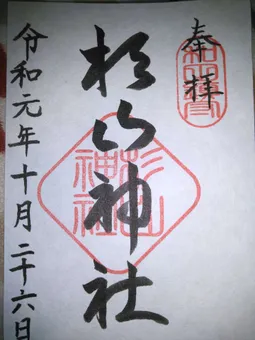 奉拝
杉山神社
令和元年十月二十六日
杉山
神社